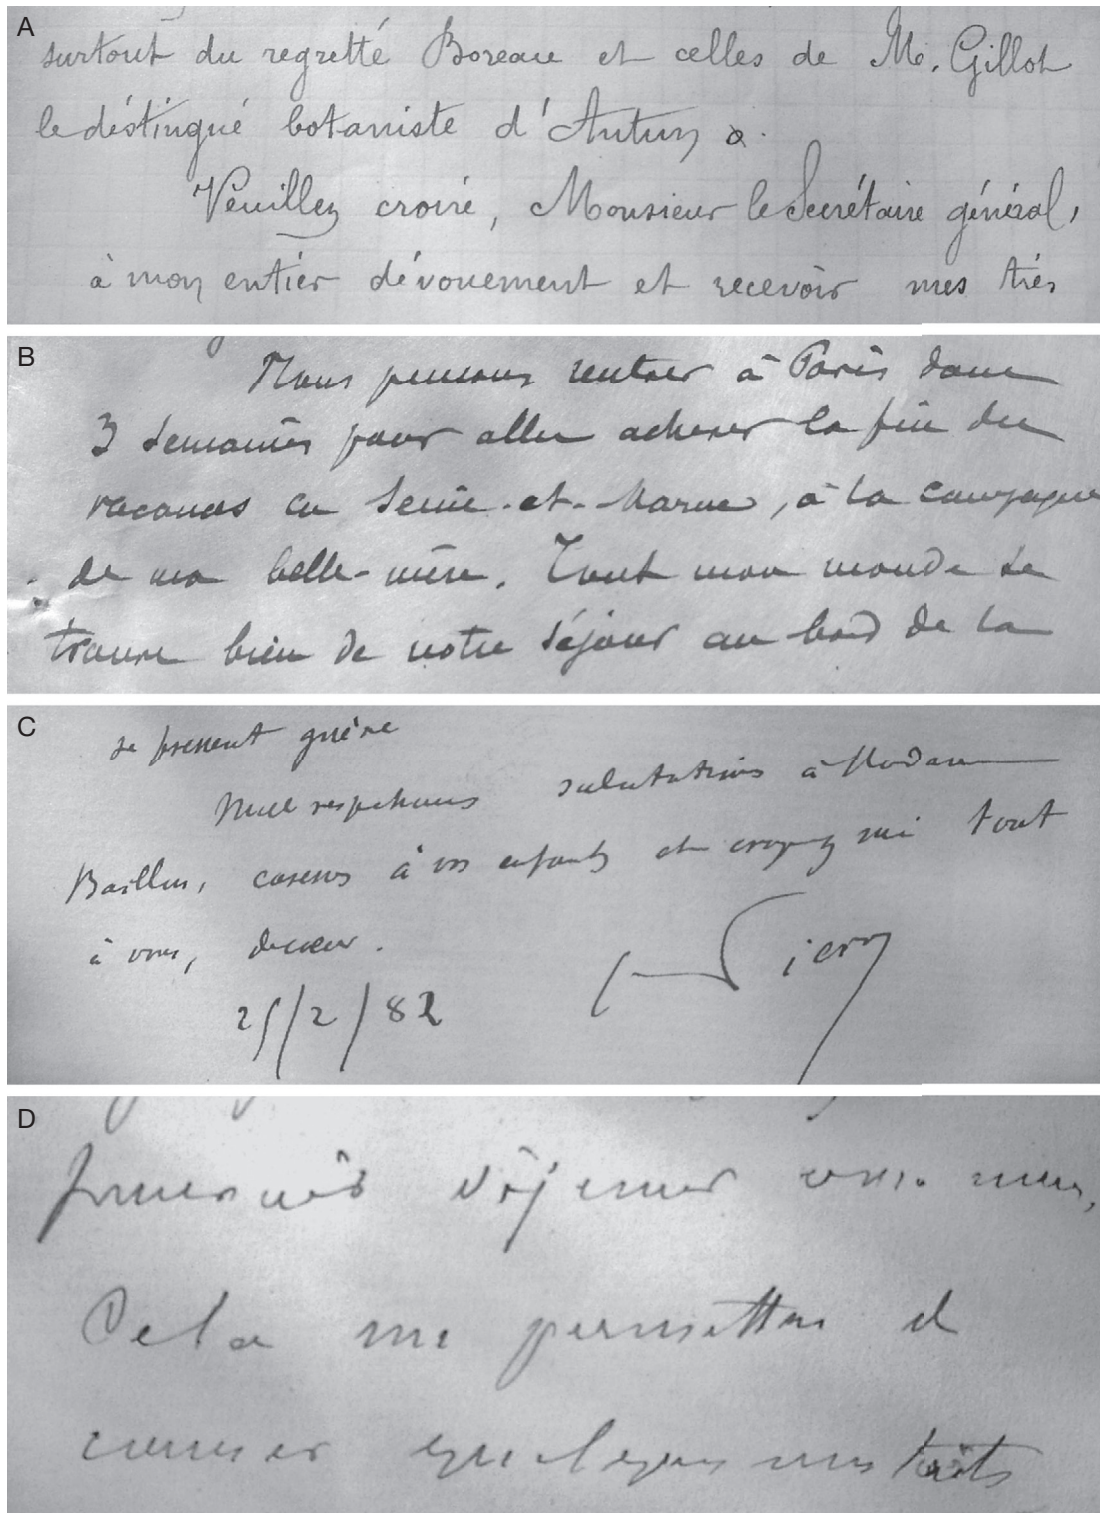 A
surtout du regretté Boreau et celles de M. Gillot
le déstingué botaniste d'Autun
Veuillez croire, Monsieur le Secrétaire général,
à mon entier dévouement et recevoir mes très
B
Nous pensons rentrer à Paris dans
3 semaines pour aller achever la fin des
vacances en Seine-et-Marne, à la campagne
de ma belle-mère. Tout mon monde se
trouve bien de notre séjour au bord de la
C
se pressent guère
Mille respectueuses salutations à Madame
Baillon, caresses à vos enfants et croyez moi tout
à vous, de cœur.
25/2/82
Pierre
D
déjeuner
Cela me permettra d
causer quelques